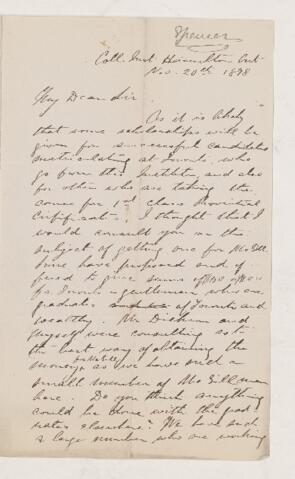 Spencer
Coll. Inst Hamilton Ont
Nov. 20th 1878
My Dear Sir
As it is likely
that some scholarships will be
given for successful Candidates
matriculating at Toronto, who
go from this Institute, and also
for others who are taking the
course for 1st class Provincial
Certificates, I thought that I
would consult you on the
subject of getting one for McGill
have proposed and
to give sums
Toronto gentlemen who are
graduates of Toronto and
wealthy. Mr Dickson and
myself were consulting as to
the best way of obtaining the
money, as we have such a
small number of McGill men
here. Do you think anything
could be done with the grad-
uates elsewhere? We have such
a large number who are working